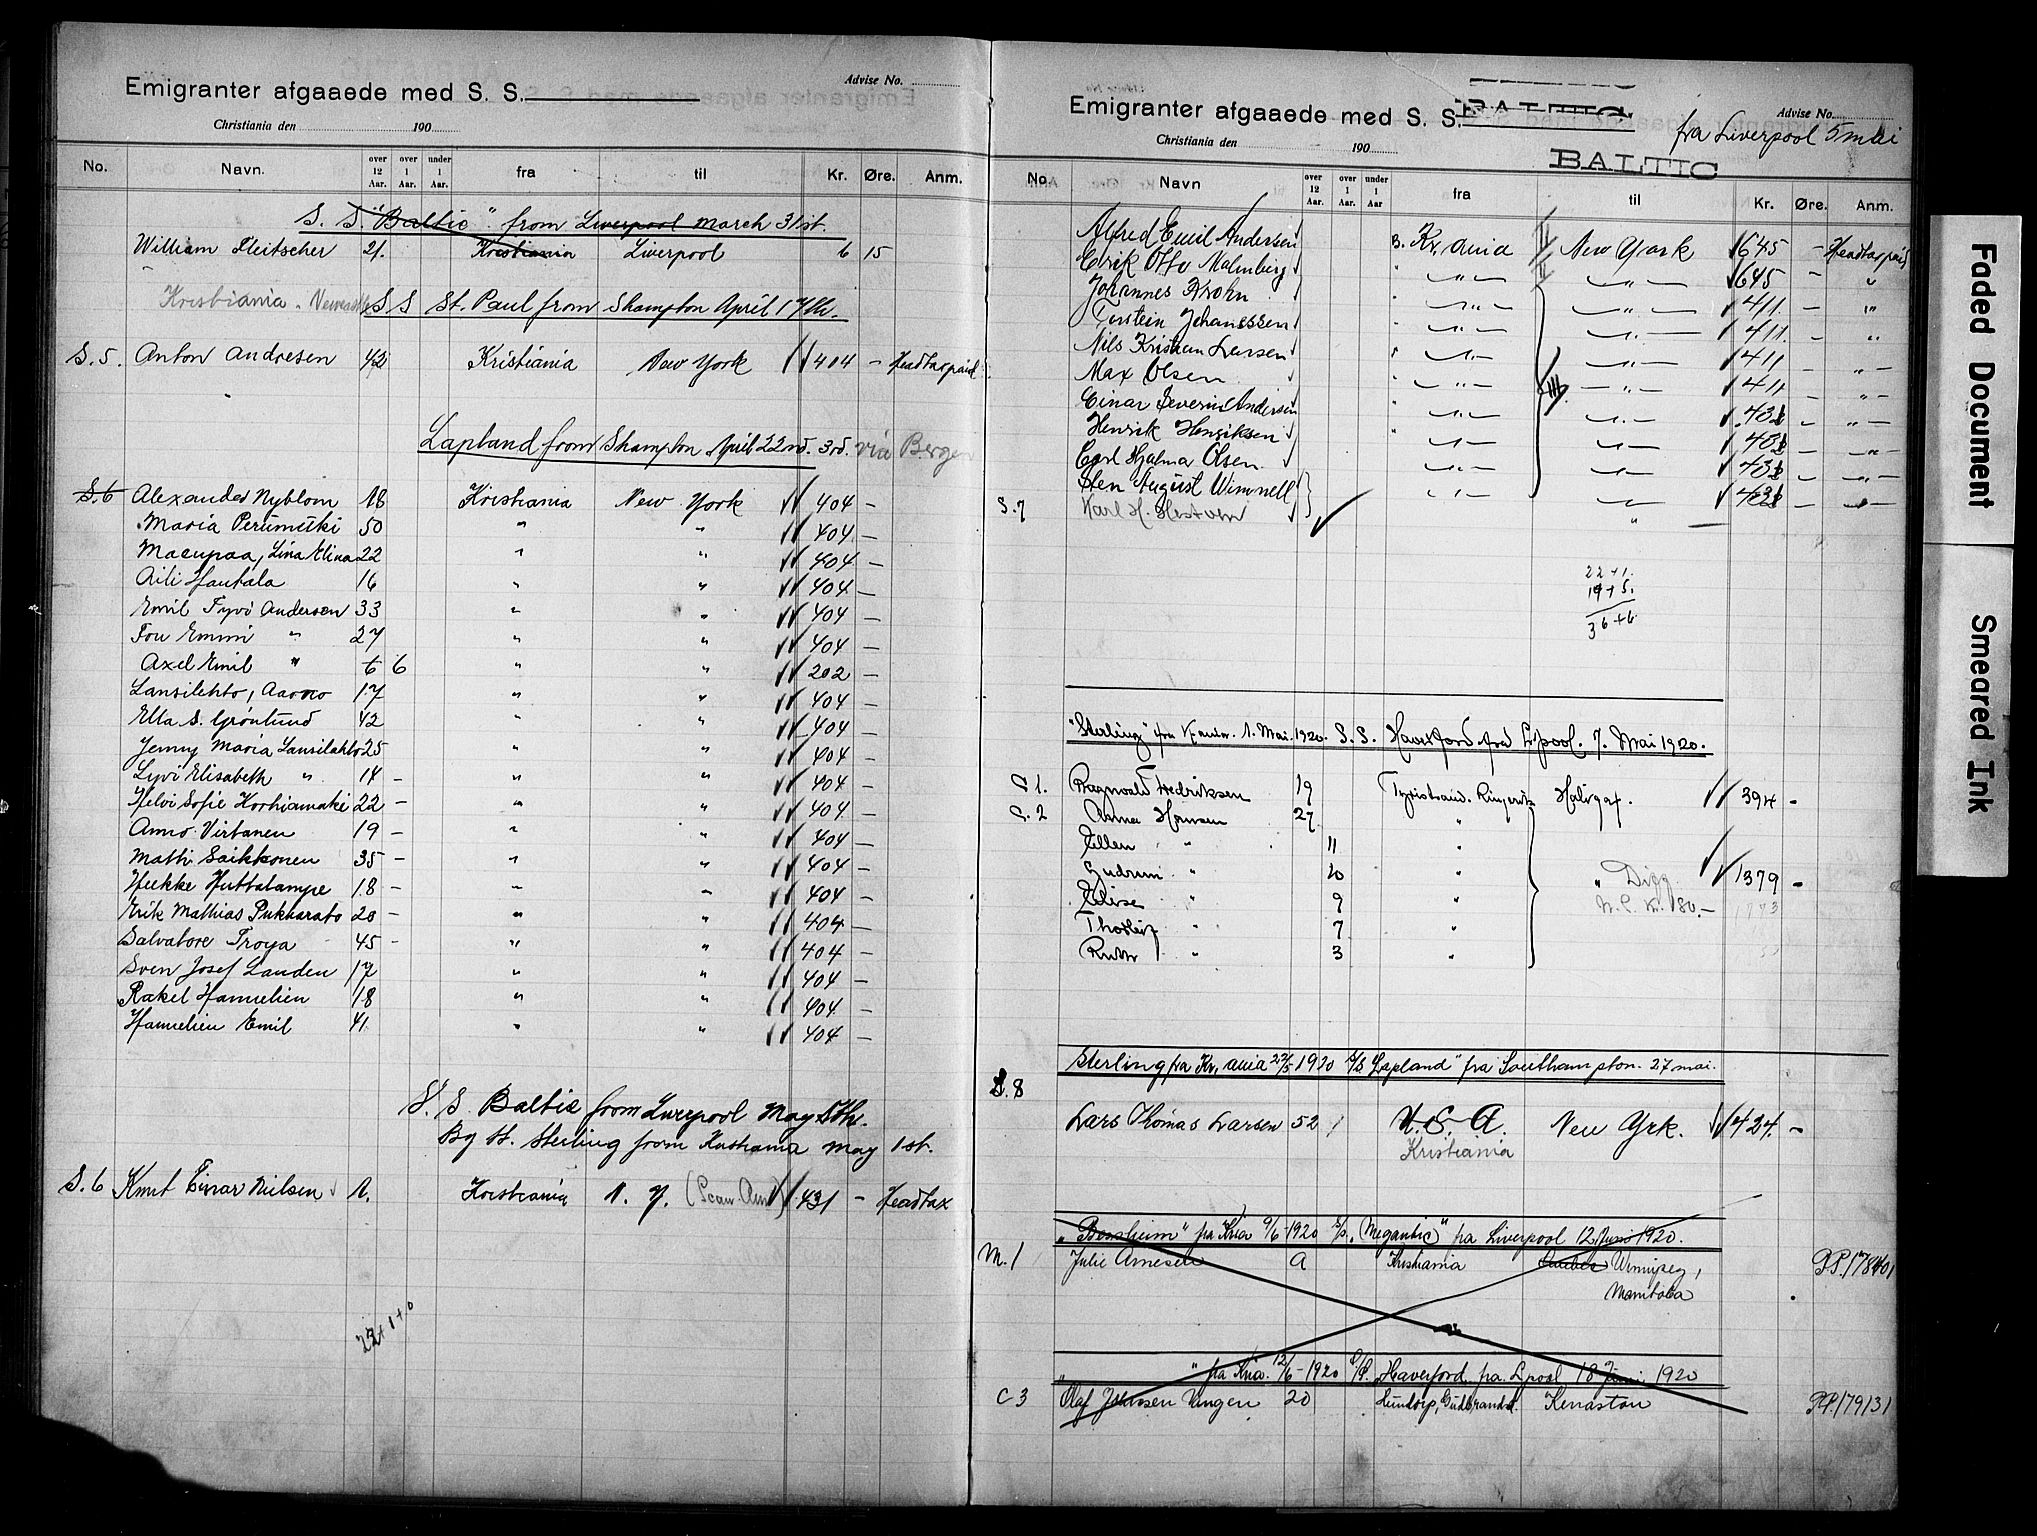 Advise No.
Emigranter afgaaede med S. S.
Christiania den 190
No. Navn. over 12 Aar. over 1 Aar. under 1 Aar. fra til Kr. Øre. Anm.
S. S. "Baltic" from Liverpool March 31st.
William 21. Kristiania Liverpool 6 15
Kristiania - S S St. Paul from Shampton April 17th.
S. 5. Anton Andresen 42 Kristiania New York 404 - Headtax paid
Lapland from Shampton April 22nd. 3rd. via Bergen
S. 6 Alexander Nyblom 18 Kristiania New York 404 -
Maria 50 " " 404 -
Lina Elina 22 " " 404 -
Aili Hautala 16 " " 404 -
Emil Tyvi Andersen 33 " " 404 -
Fru Emmi " 27 " " 404 -
Axel Emil " 6 6 " " 202 -
Lansilehto, Aarno 17 " " 404 -
Ella S. Gröntund 42 " " 404 -
Jenny Maria Lansilahto 25 " " 404 -
Lyvi Elisabeth " 14 - " " 404 -
Helvi Sofie Korhiamaki 22 - " " 404 -
Anno Virtanen 19 - " " 404 -
Matti Saikkonen 35 - " " 404 -
Heikke Huttalampe 18 - " " 404 -
Erik Mathias Pukkarato 20 - " " 404 -
Salvatore Troya 45 - " " 404 -
Sven Josef Landen 17 " " 404 -
Rakel 18 " " 404 -
Emil 41 " " 404 -
S. S. Baltic from Liverpool May 5th.
By St. Sterling from Kristiania May 1st.
S. 6 Knut Einar Nielsen 1. Kristiania N. Y. (Scan. Am) 431 - Headtax
22+1+0
Advise No.
Emigranter afgaaede med S. S. BALTIC
fra Liverpool 5 mai
Christiania den 190
BALTIC
No. Navn over 12 Aar. over 1 Aar. under 1 Aar fra til Kr. Øre. Anm.
Alfred Emil Andersen B. Kr,ania II New York 645 - Headtax paid
Erik Otto Malmberg " " II " 645 - "
Johannes Krohn " " " 411. - "
Torstein Johanssen " " " 411. - "
Nils Kristian Larsen " " " 411 - "
Max Olsen " " III " 411 - "
Einar Severin Andersen " " 431 - "
Henrik Henriksen " " 431 - "
Carl Hjalmar Olsen " " 431 - "
Sten August Wimnell " " 431 - "
S. 7 Karl H. Hestven " -
22+1.
14+5.
36+6.
"Sterling" fra 1. Mai. 1920. S. S. Haverford fra Lpool. 7. Mai 1920.
C 1. Ragnvald Fredriksen 19 Tyristrand. Ringerike Halifax. 394 -
C. 2 Anna Hansen 27 "
Ellen " 11 "
Gudrun " 10 " " Digg 1379 -
Elise " 9 " 180.-
Thorleif " 7 "
Ruth " 3 "
Sterling fra Kr,ania 22/5 1920 S/S "Lapland" fra Southampton. 27 mai.
S. 8
Lars Thomas Larsen 52 U. S. A. New York. 424. -
Kristiania
"Bessheim" fra Kria 9/6-1920 S/S. "Megantic" fra Liverpool 12 Juni 1920.
M. 1 Julie Arnesen a Kristiania Quebec Winnipeg, PP. 178401
Manitoba
" " fra Kria. 12/6-1920 S/S. Haverford fra Lpool 18 Juni 1920
C 3 Olaf Johansen Vangen 20 Hundorp, Gudbrandsd. Kenaston PP. 179131
Faded Document
Smeared Ink